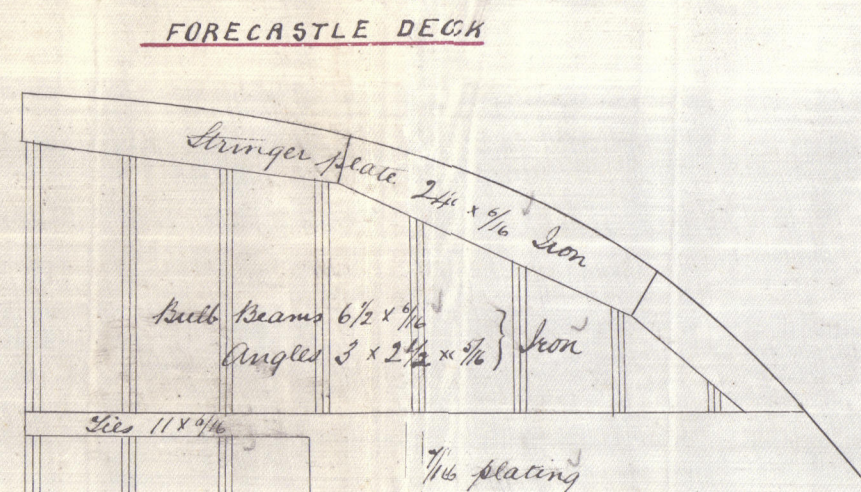 FORECASTLE DECK
Stringer plate 24 x 6/16 Iron
Bulb Beams 6 1/2 x 6/16
Angles 3 x 2 1/2 x 5/16 } Iron
Ties 11 x 6/16
7/16 plating